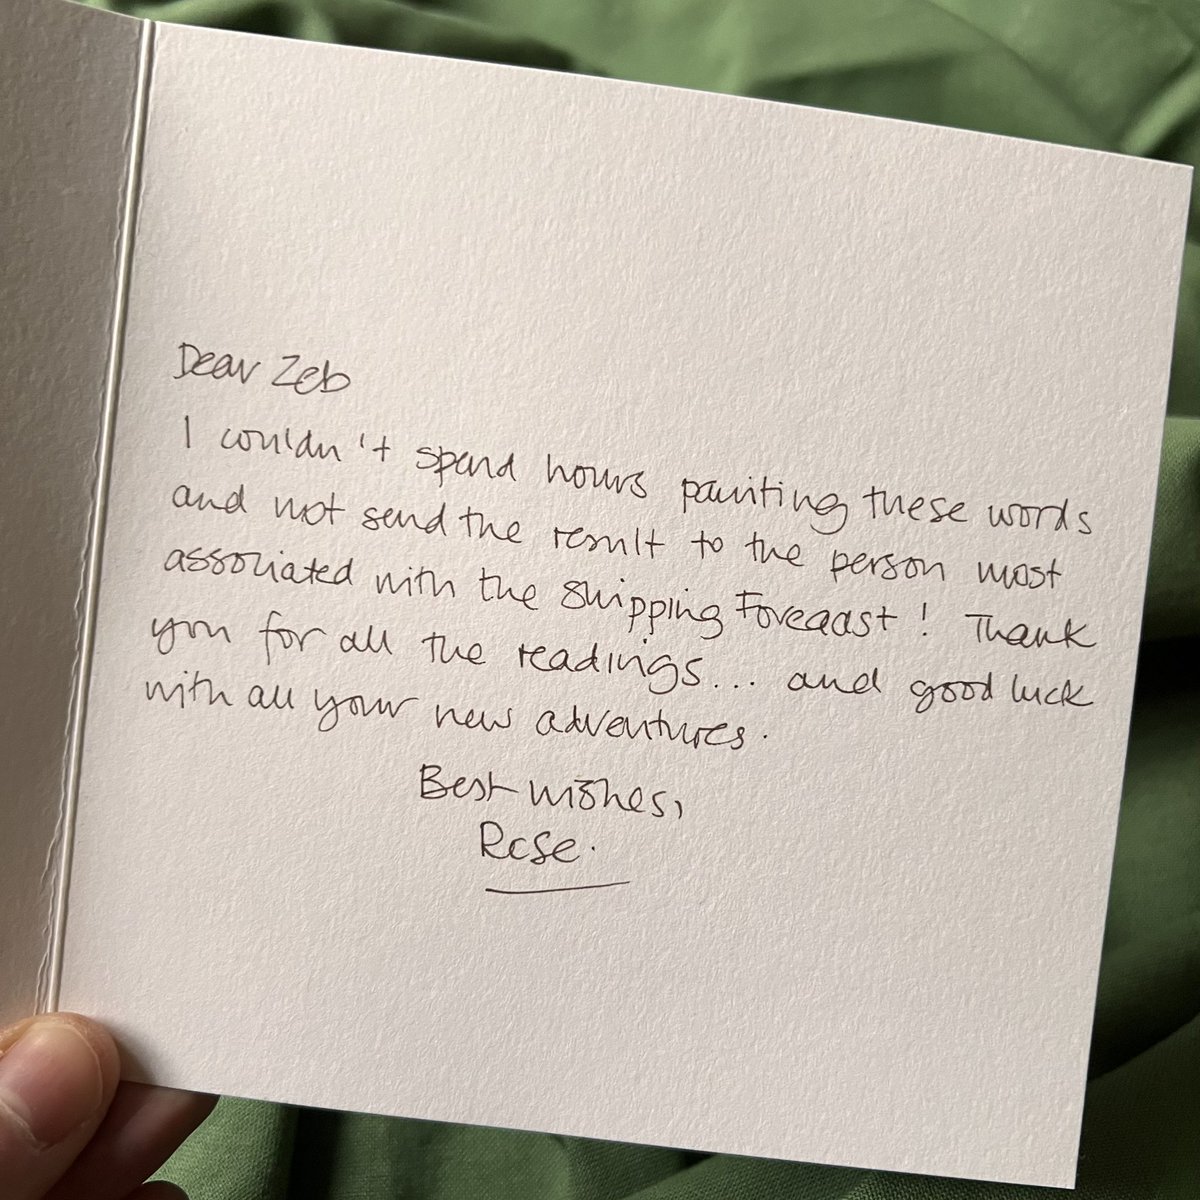 Dear Zeb
I couldn't spend hours painting these words
and not send the result to the person most
associated with the Shipping Forecast! Thank
you for all the readings... and good luck
with all your new adventures.
Best wishes,
Rose.